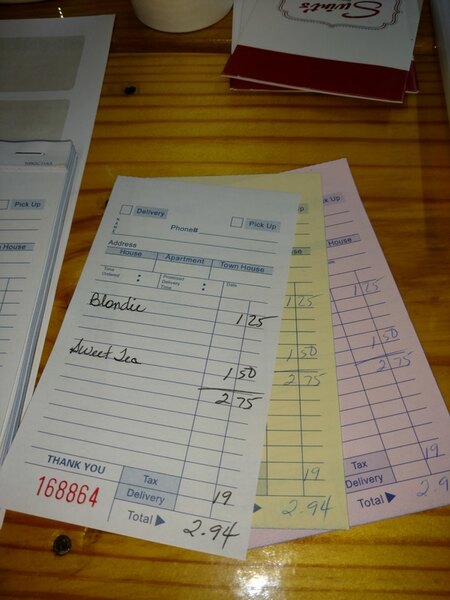 Swint's
50GC7AA
Pick Up
House
Delivery
Pick Up
NAME
Phone#
Address
House Apartment Town House
Time Ordered : Promised Delivery Time : Date
Blondie
1 25
Sweet Tea
1 50
2 75
THANK YOU
168864
Tax
Delivery 19
Total 2.94
Up
House
1 25
1 50
2 75
19
2.94
Pick Up
Town House
1 25
1 50
2 75
Tax
Delivery 19
Total 2.9